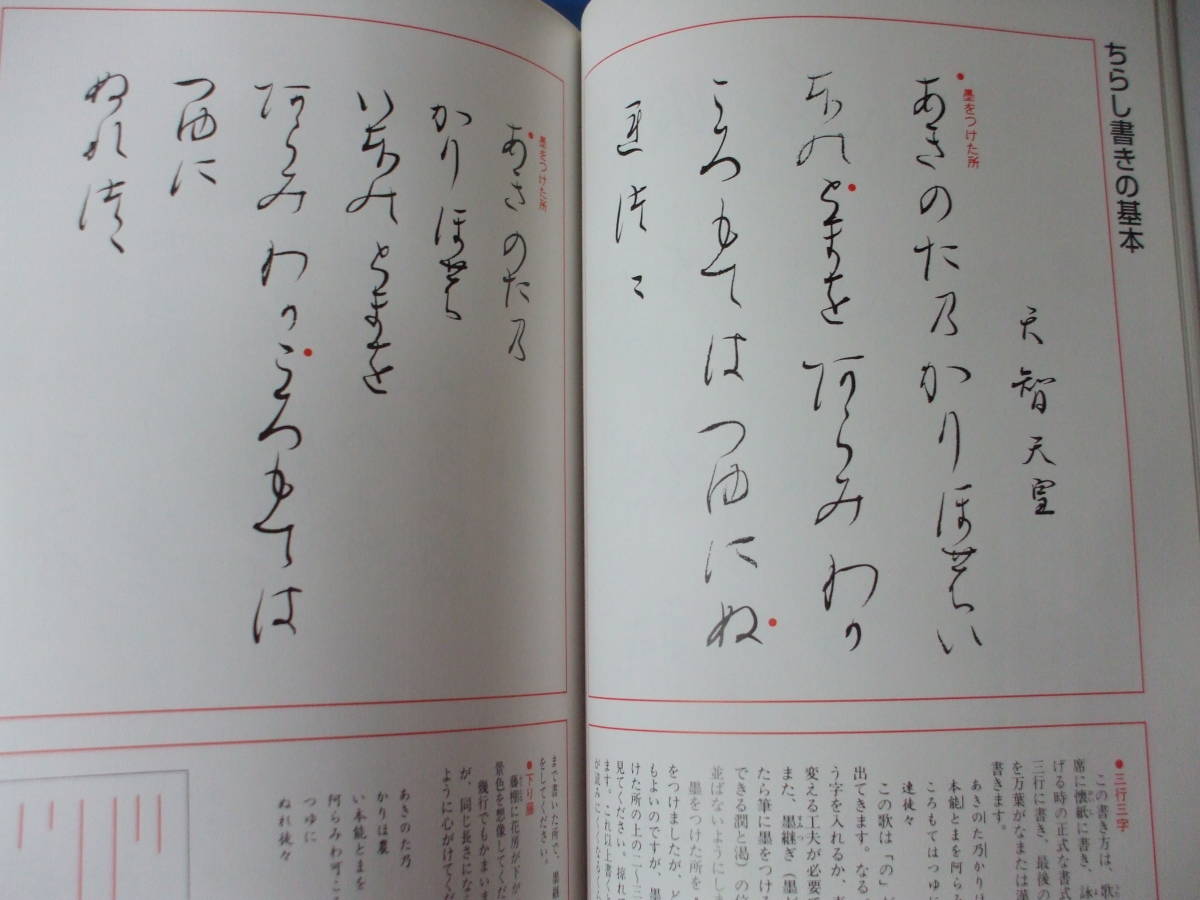 ちらし書きの基本
天智天皇
墨をつけた所
あきのた乃かりほ農い
本能とまを阿らみわ可
ころもてはつゆにぬ
連徒々
●三行三字
この書き方は、歌
席に懐紙に書き、詠
げる時の正式な書式
三行に書き、最後の
を万葉がなまたは漢
書きます。
あきのた乃かりほ
本能とまを阿らみ
ころもてはつゆに
連徒々
この歌は「の」が
出てきます。なる
う字を入れるか、
変える工夫が必要で
また、墨継ぎ（墨
たら筆に墨をつける
できる潤と渇）の位
並ばないようにしま
墨をつけた所を
をつけましたが、ど
もよいのですが、墨
けた所の上の二〜三
見てください。掠れ
ます。これ以上書く
墨をつけた所
あきのた乃
かりほ農
い本能とまを
阿らみわ可ころもては
つゆに
ぬれ徒々
まで書いた所で、墨継
をしてください。
●下り藤
藤棚に花房が下が
景色を想像してくだ
幾行でもかまいま
が、同じ長さにな
ように心がけてくだ
あきのた乃
かりほ農
い本能とまを
阿らみわ可こ
つゆに
ぬれ徒々